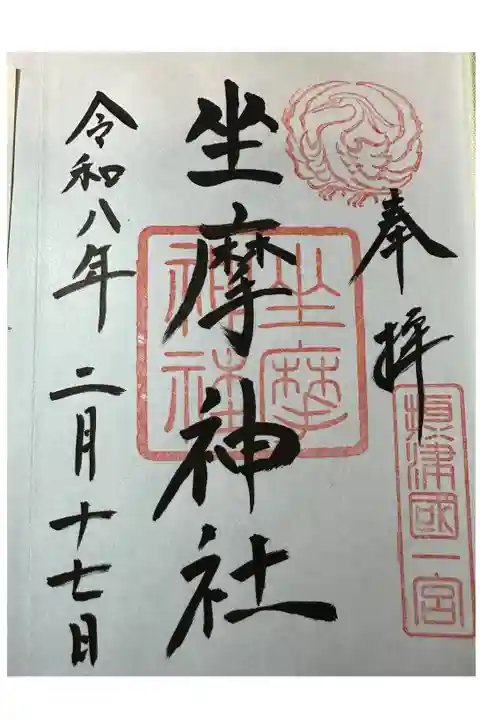 奉拝
摂津國一宮
坐摩神社
坐摩
神社
令和八年二月十七日